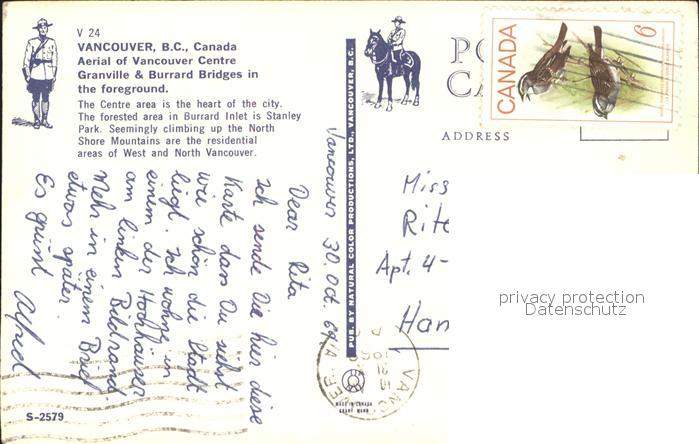 V 24
VANCOUVER, B.C., Canada
Aerial of Vancouver Centre
Granville & Burrard Bridges in
the foreground.
The Centre area is the heart of the city.
The forested area in Burrard Inlet is Stanley
Park. Seemingly climbing up the North
Shore Mountains are the residential
areas of West and North Vancouver.
Vancouver 30. Oct. 69
Dear Rita
Ich sende Die hier diese
Karte dan Du siehst
wie schön die Stadt
liegt. Ich wohne in
einem der Hochhäuser
am linken Bildrand.
Mehr in einem Brief
etwas später.
Es grüsst Alfred
S-2579
PUB. BY NATURAL COLOR PRODUCTIONS, LTD., VANCOUVER, B.C.
MADE IN CANADA
PO
CA
ADDRESS
CANADA
6
Miss
Rite
Apt. 4-
Han
privacy protection
Datenschutz